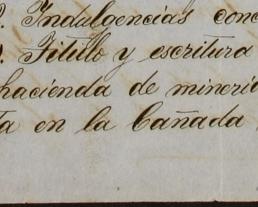 Indulgencias conc
Titulo y escritura
hacienda de mineri
ta en la Cañada